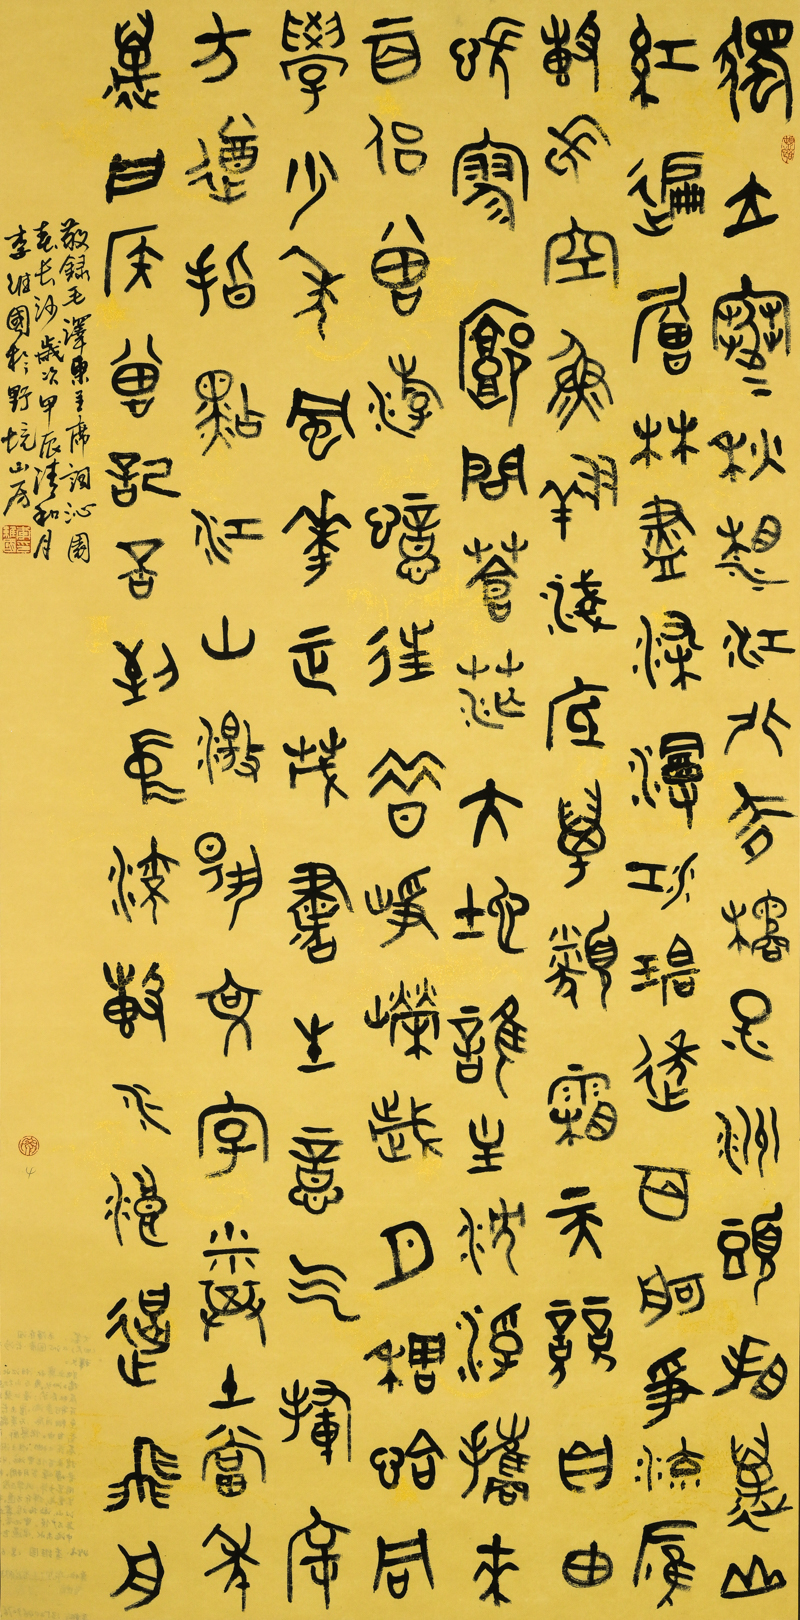 獨立寒秋湘江北去橘子洲頭看萬山
紅遍層林盡染漫江碧透百舸爭流鷹
擊長空魚翔淺底萬類霜天競自由
悵寥廓問蒼茫大地誰主沉浮攜來
百侶曾遊憶往昔崢嶸歲月稠恰同
學少年風華正茂書生意氣揮斥
方遒指點江山激揚文字糞土當年
萬戶侯曾記否到中流擊水浪遏飛舟
敬錄毛澤東主席詞沁園
春長沙歲次甲辰清和月
李維國於野境山房